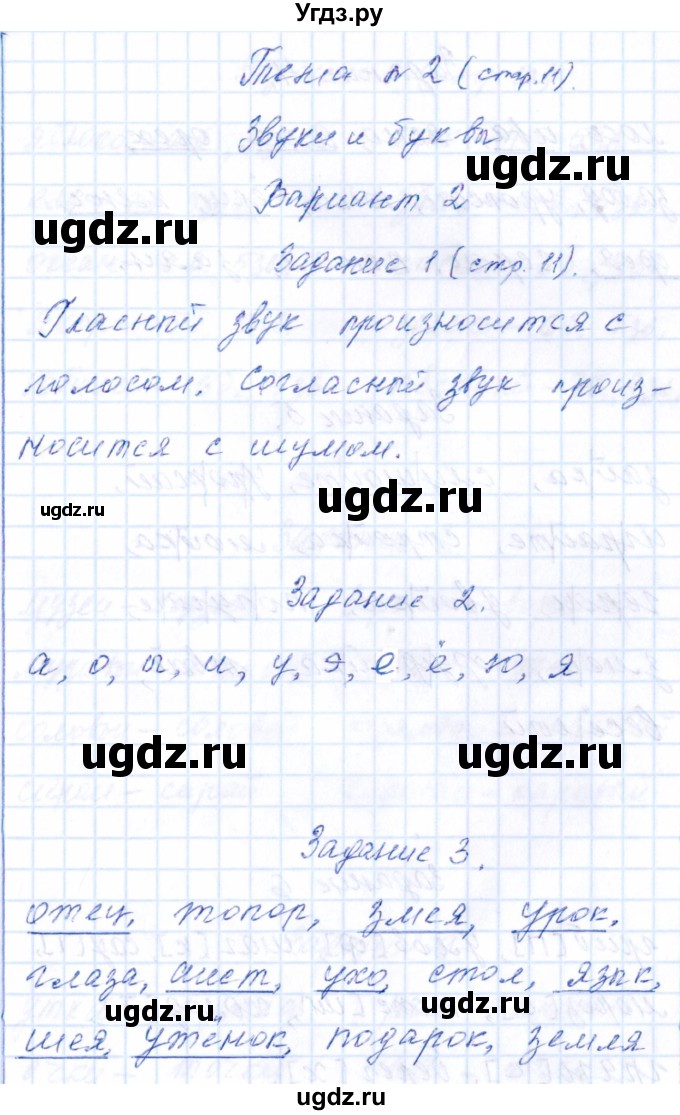 Угдз.ру
Тема № 2 (стр. 11).
Звуки и буквы
ugdz.ru
Вариант 2
ugdz.ru
Задание 1 (стр. 11).
Гласный звук произносится с
голосом. Согласный звук произ-
носится с шумом.
ugdz.ru
ugdz.ru
Задание 2.
а, о, ы, и, у, э, е, ё, ю, я
ugdz.ru
ugdz.ru
Задание 3.
отец, топор, змея, урок,
глаза, аист, ухо, стол, язык,
ugdz.ru
ugdz.ru
шея, утёнок, подарок, земля
ugdz.ru